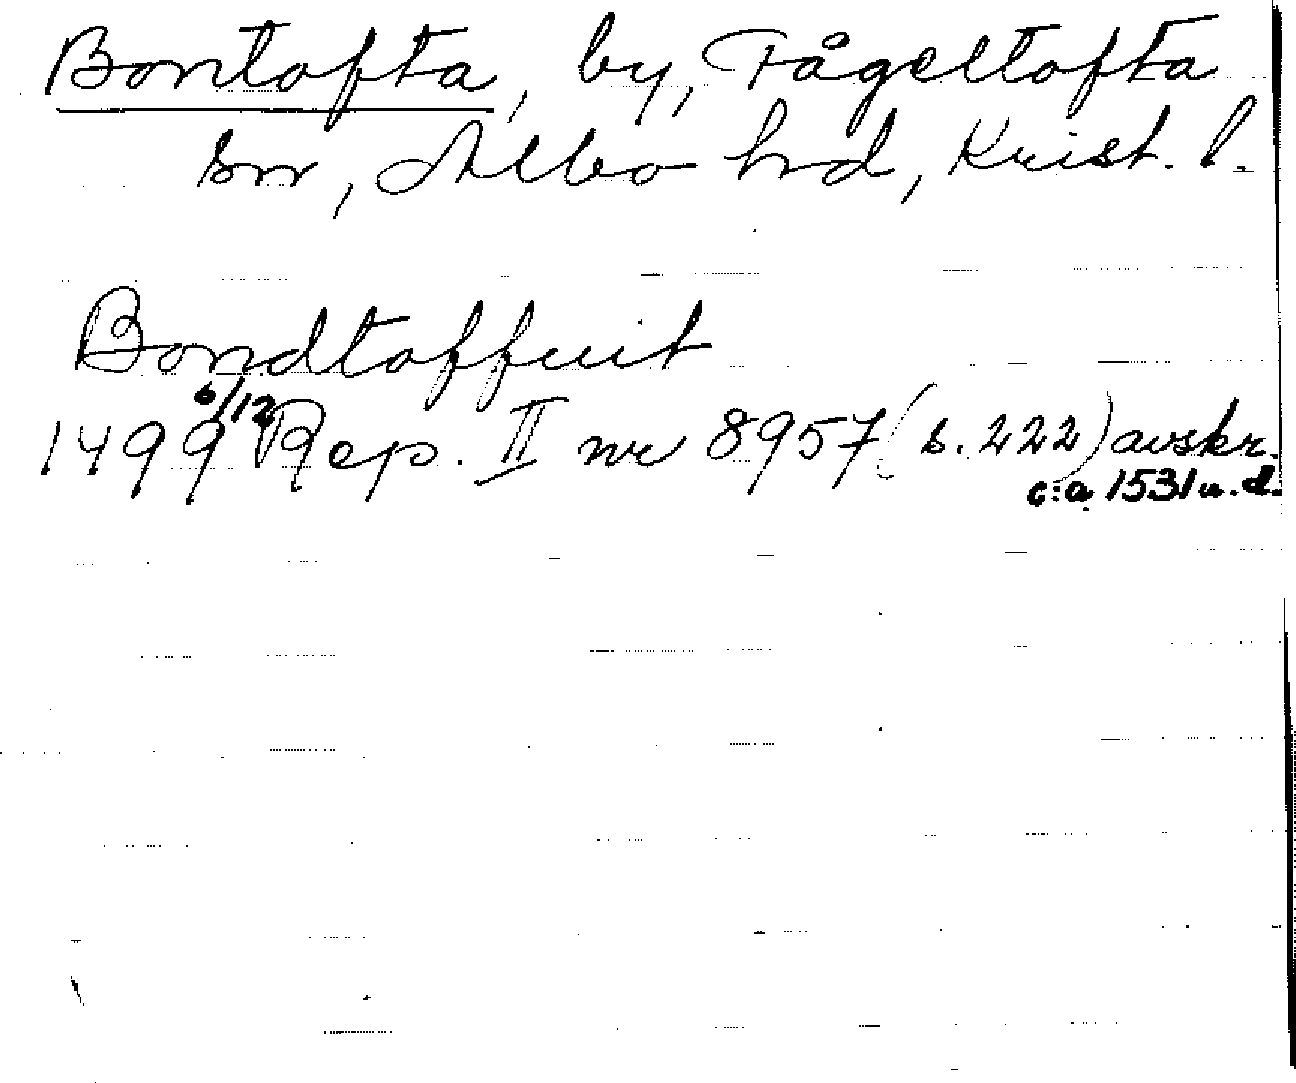 Bontofta, by, Fågeltofta
sn, Albo hd, Krist. l.
Bondtoffuit
1499 6/12 Rep. II nr 8957 (s. 222) avskr.
c:a 1531 u. d.